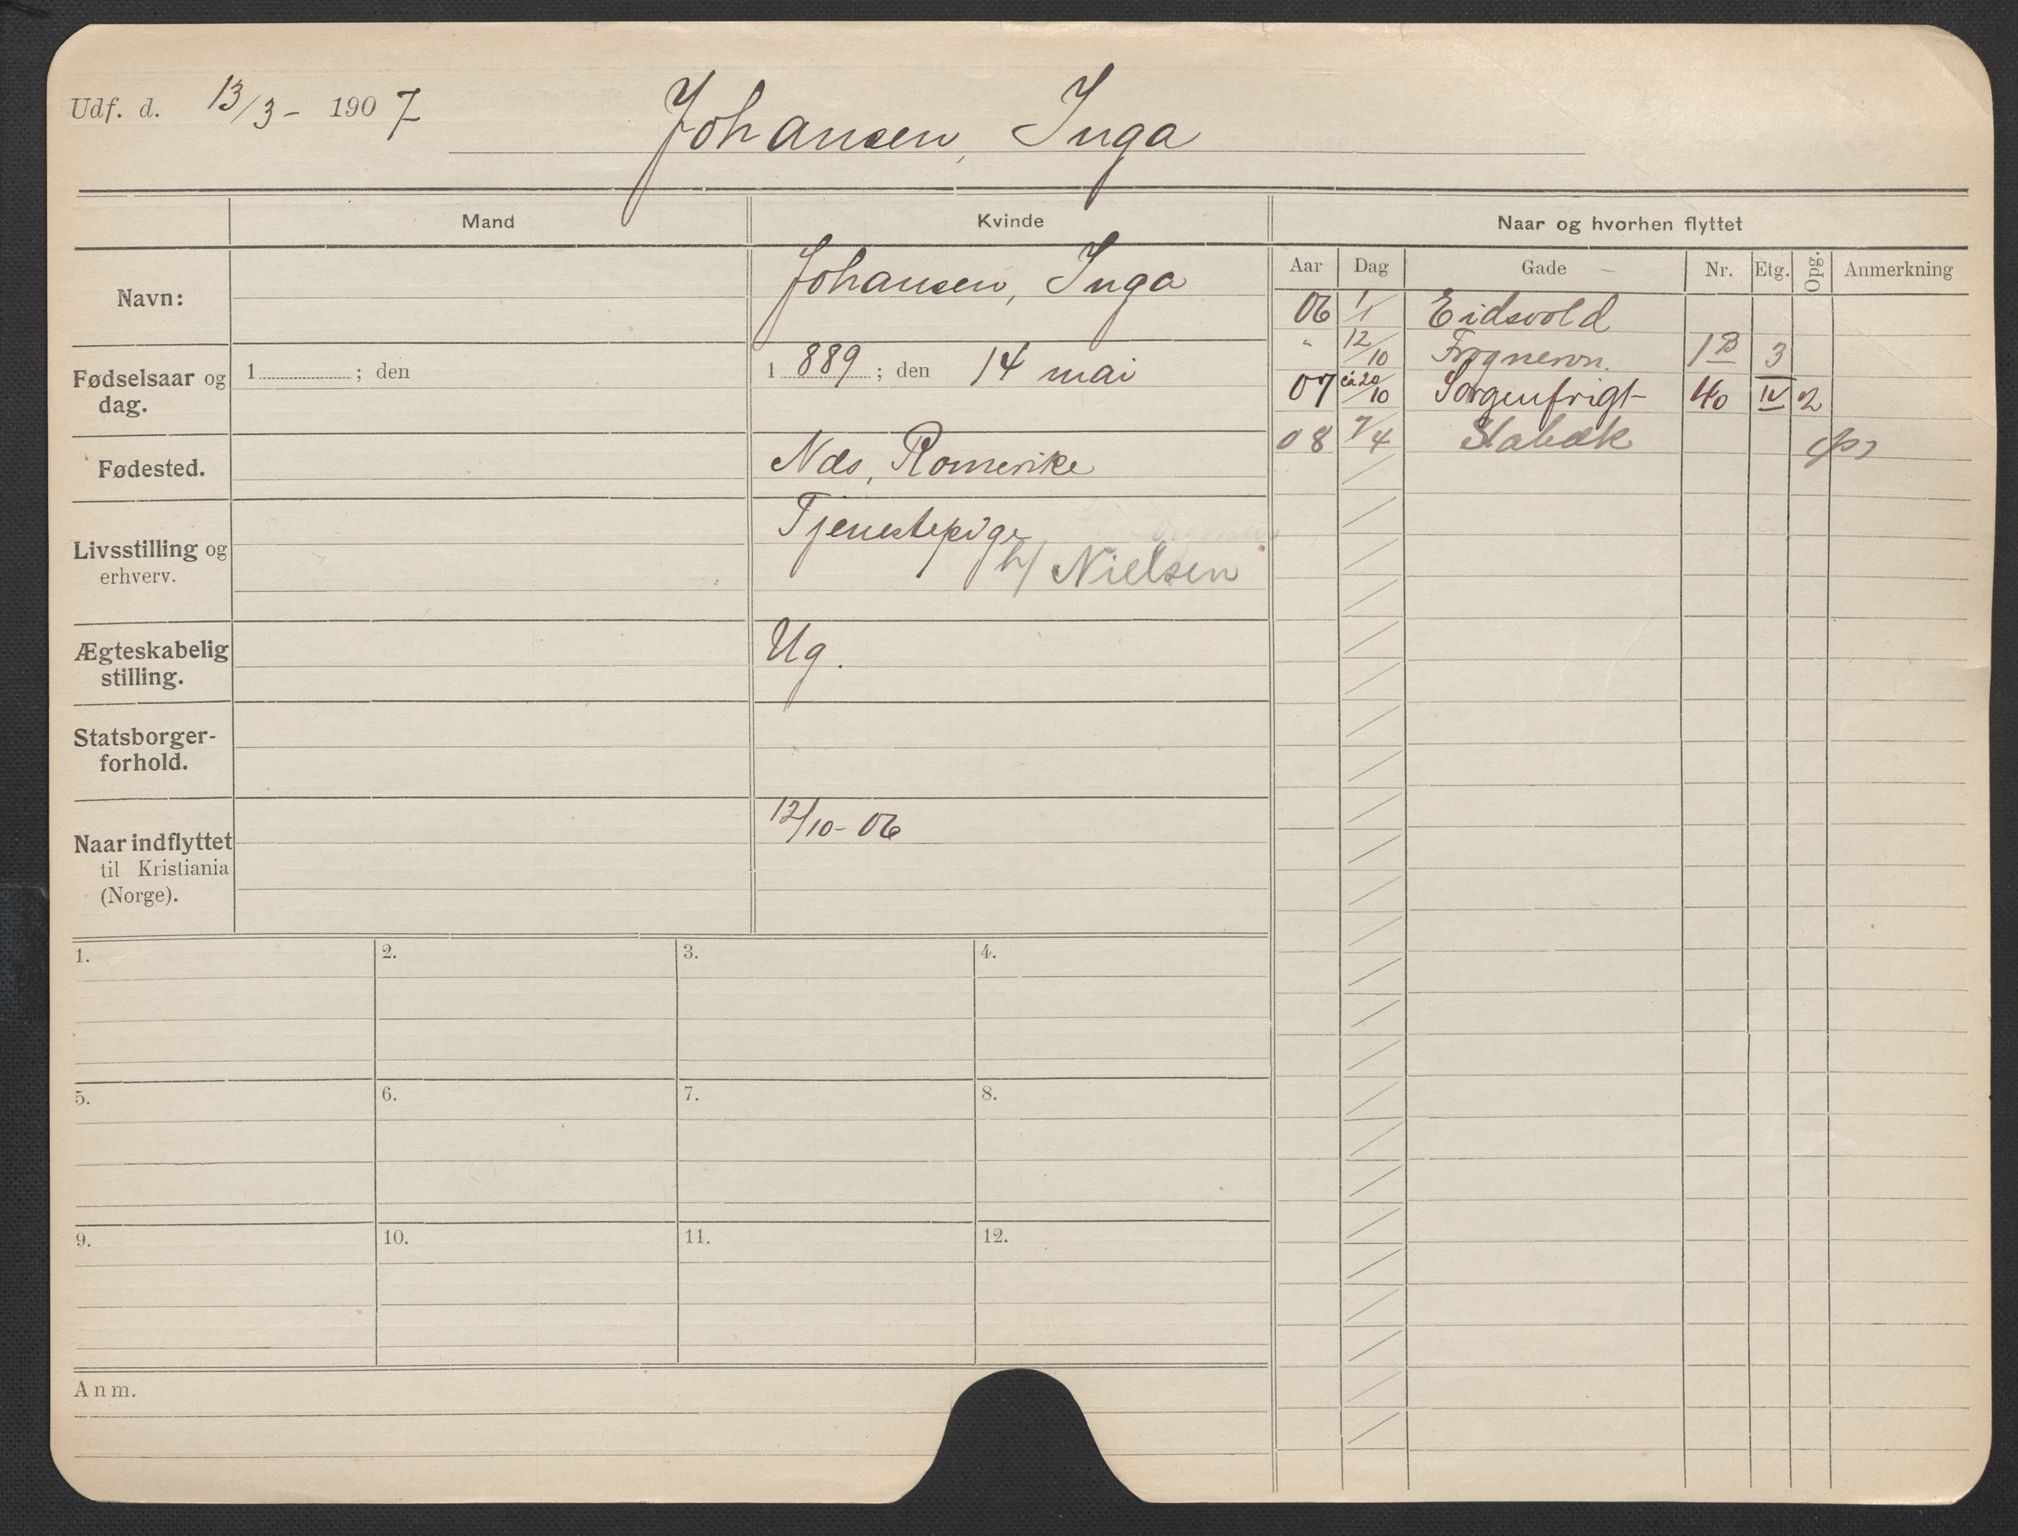 Udf. d. 13/3 - 1907 Johansen, Inga
Mand Kvinde Naar og hvorhen flyttet
Aar Dag Gade Nr. Etg. Opg. Anmerkning
Navn: Johansen, Inga
Fødselsaar og 1 ; den 1889 ; den 14 mai
dag.
Fødested. Næs, Romerike
Livsstilling og Tjenestepige
erhverv. h/ Nielsen
Ægteskabelig Ug.
stilling.
Statsborger-
forhold.
Naar indflyttet 12/10 - 06
til Kristiania
(Norge).
06 1/1 Eidsvold
" 12/10 Frognervn. 1B 3
07 ca 20/10 Sorgenfrigt 40 IV 2
08 7/4 Stabæk
1. 2. 3. 4.
5. 6. 7. 8.
9. 10. 11. 12.
Anm.